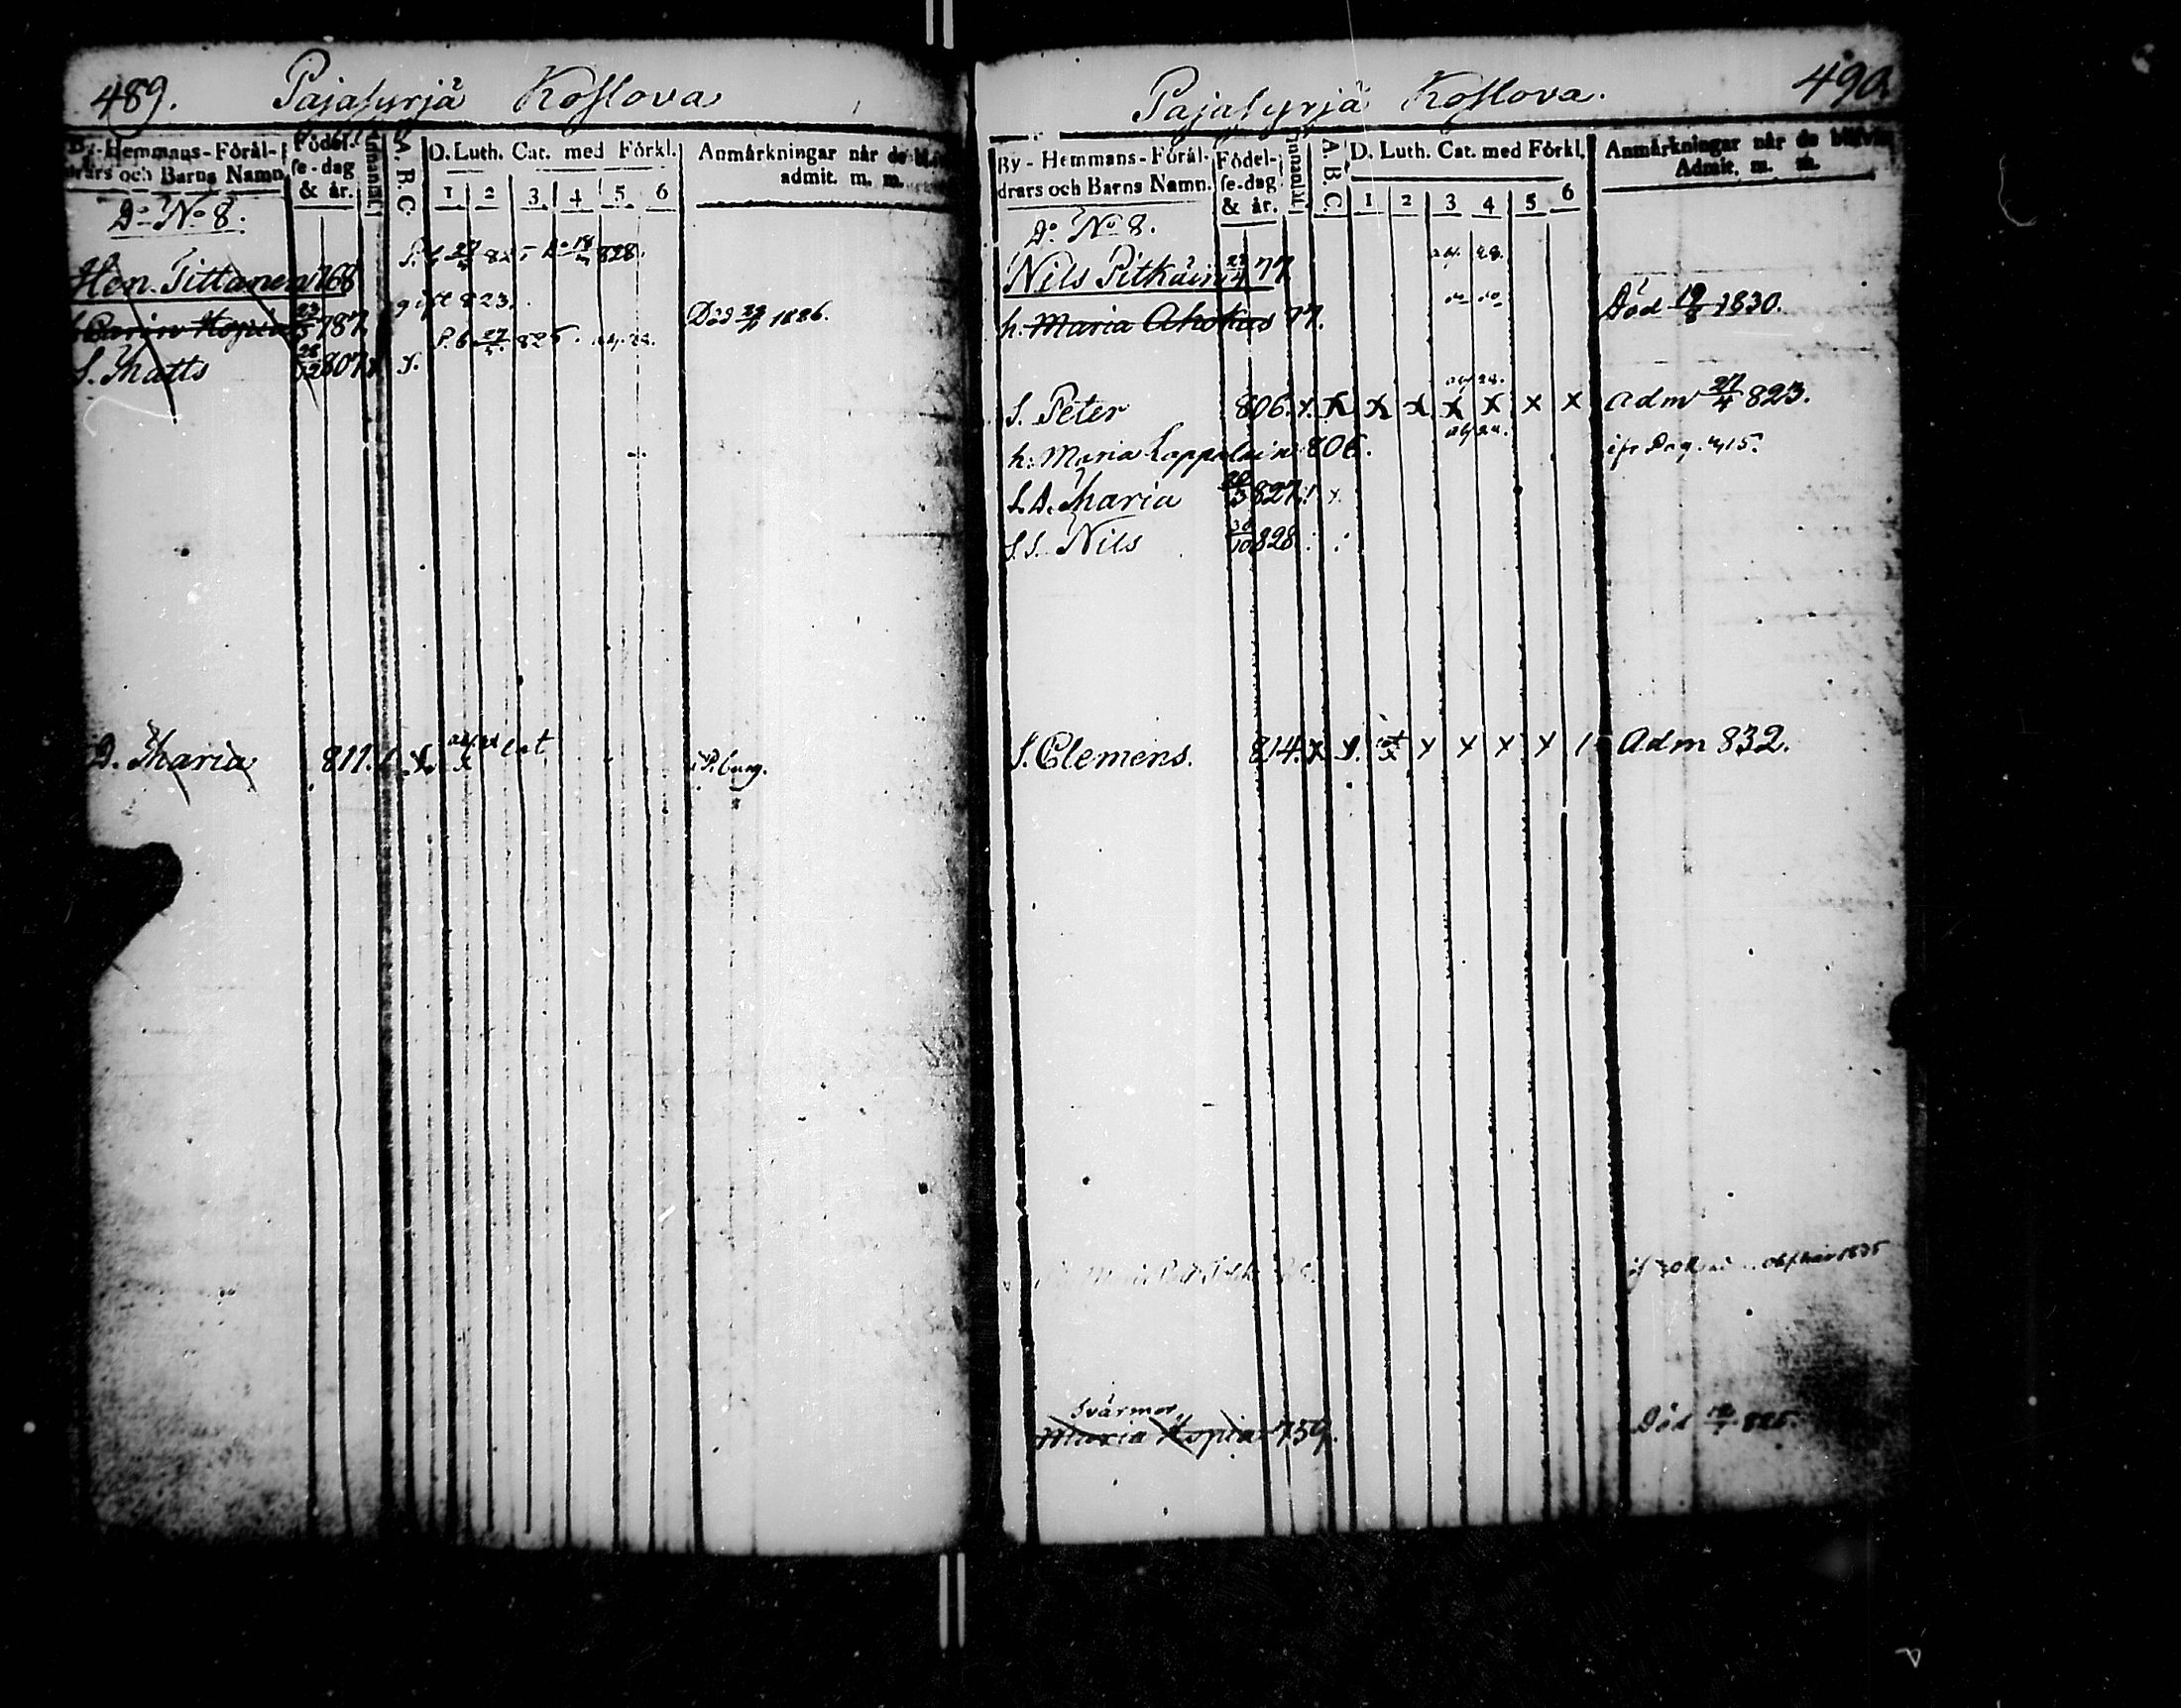 489. Pajasyrjä Koslova
By-Hemmans-Föräl-
drars och Barns Namn.
Födel-
se-dag
& år.
A. B. C.
D. Luth. Cat. med Förkl.
1 2 3 4 5 6
Anmärkningar när de
admit. m. m.
Do No 8.
Hen. Tittanen 768
P. b 27/5 825 18/5 828.
gift 823.
23/5 787 Död 23/6 1826.
S. Matts 28/12 807 x x.
P. b 27/5. 825.
D. Maria 811. x
Pajasyrjä Koslova. 490.
By-Hemmans-Föräl-
drars och Barns Namn.
Födel-
se-dag
& år.
A. B. C.
D. Luth. Cat. med Förkl.
1 2 3 4 5 6
Anmärkningar när de blifvit
Admit. m. m.
Do No 8.
Nils Pitkäin 77
h. Maria Ahokas 77. Död 19/8 1830.
S. Peter 806. x. x x x x x x x adm 27/4 823.
h. Maria Lappalain 806.
S. D. Maria 827.
S. S. Nils 30/10 828
S. Clemens. 814. x x. x x x x x Adm 832.
Svärmor
Maria Kopia 759. Död 825.